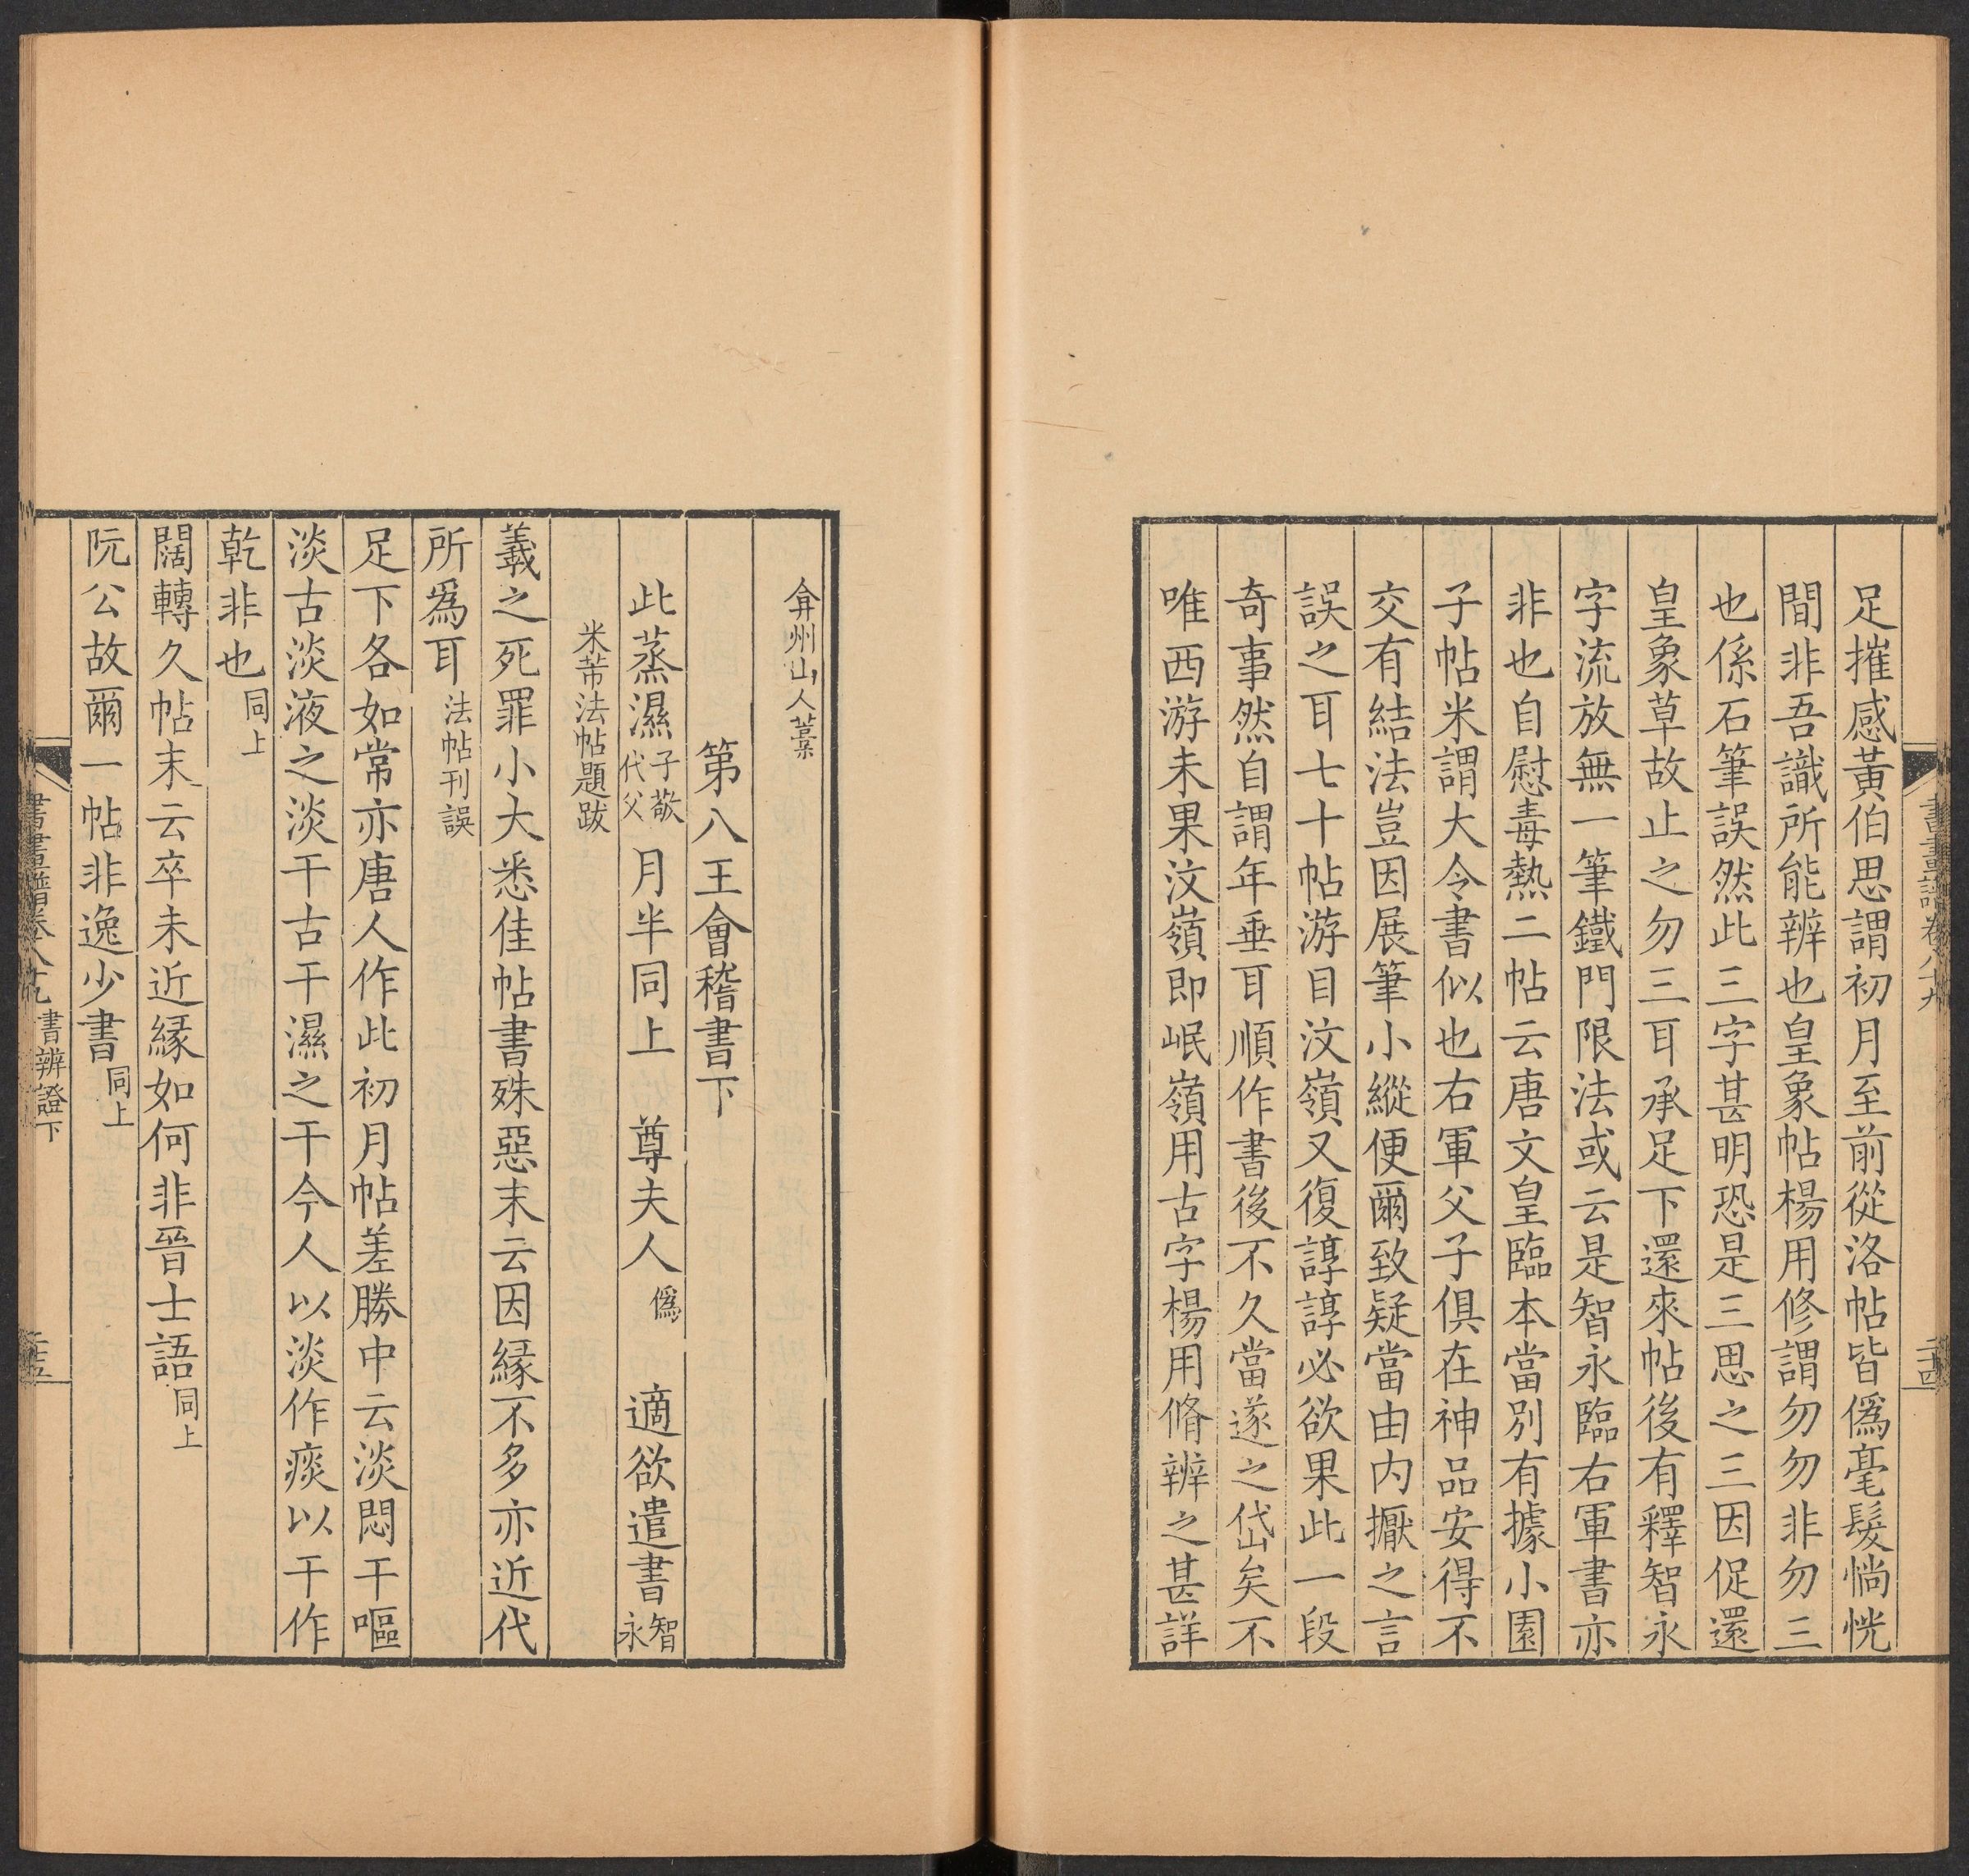 足摧感黃伯思謂初月至前從洛帖皆僞毫髮惝恍
間非吾識所能辨也皇象帖楊用修謂勿勿非勿三
也係石筆誤然此三字甚明恐是三思之三因促還
皇象草故止之勿三耳承足下還來帖後有釋智永
字流放無一筆鐵門限法或云是智永臨右軍書亦
非也自慰毒熱二帖云唐文皇臨本當別有據小園
子帖米謂大令書似也右軍父子俱在神品安得不
交有結法豈因展筆小縱便爾致疑當由內擫之言
誤之耳七十帖游目汶嶺又復諄諄必欲果此一段
奇事然自謂年垂耳順作書後不久當遂之岱矣不
唯西游未果汶嶺即岷嶺用古字楊用脩辨之甚詳
書畫譜卷八十九
二十四
弇州山人藁
第八王會稽書下
此蒸濕子敬代父 月半同上 尊夫人僞 適欲遣書智永
米芾法帖題跋
羲之死罪小大悉佳帖書殊惡末云因緣不多亦近代
所爲耳法帖刊誤
足下各如常亦唐人作此初月帖差勝中云淡悶干嘔
淡古淡液之淡干古干濕之干今人以淡作痰以干作
乾非也同上
闊轉久帖末云卒未近緣如何非晉士語同上
阮公故爾一帖非逸少書同上
書畫譜卷八十九 書辨證下
二十五